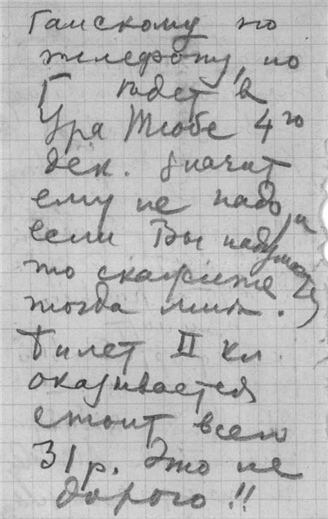 Гамскому по
телефону, но
Г едет в
Ура Тюбе 4го
дек. Значит
ему не надо, и
если Вы надумаете
то скажите
тогда мне.
Билет II кл
оказывается
стоит всего
31 р. Это не
дорого!!